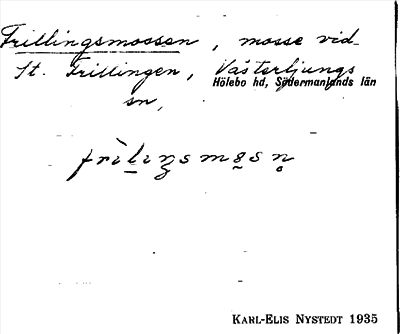 Frillingsmossen, mosse vid
St. Frillingen, Västerljungs
Hölebo hd, Södermanlands län
sn,
KARL-ELIS NYSTEDT 1935